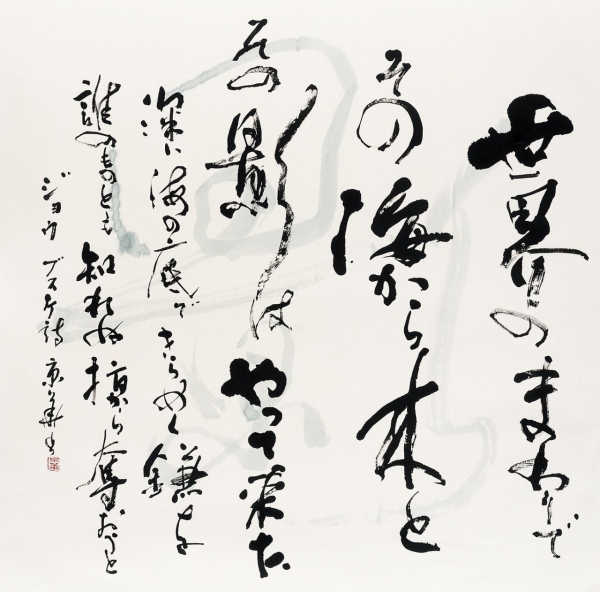 世界のまわりで
その海から木と
その影はやって来た
深い海の底できらめく鎌を
誰のものとも知れぬ から奪おうと
ジョウ ブスケ詩